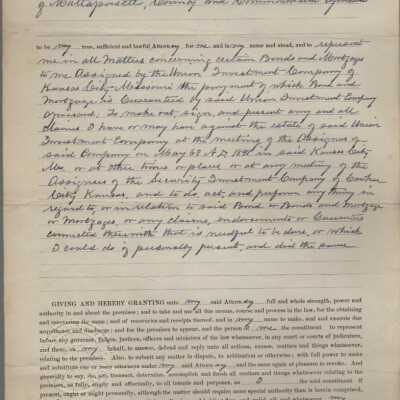 of Mattapoisett, County and Commonwealth
to be my true, sufficient and lawful Attorney for me and in my name and stead, and to represent
me in all Matters concerning certain Bonds and Mortgages
to me Assigned by the Union Investment Company of
Kansas City Missouri the payment of which Bond and
Mortgage is Guaranteed by said Union Investment Company
To make out, sign, and present any and all
Claims I have or may have against the estate of said Union
Investment Company at the meeting of the Assignee of
said Company on May A.D. 1891 in said Kansas City
Mo. or at other times or place or at any meeting of the
Assignees of the Security Investment Company of
City Kansas, and to do, act, and perform any thing in
regard to, or in relation to said Bond or Bonds and Mortgage
or Mortgages, or any claims, endorsements or Guarantees
connected therewith that is needful to be done, or which
I could do if personally present, and did the same
GIVING AND HEREBY GRANTING unto my said Attorney full and whole strength, power and
authority in and about the premises; and to take and use all due means, course and process in the law, for the obtaining
and recovering the same; and of recoveries and receipts thereof, and in my name to make, seal and execute due
acquittance and discharge; and for the premises to appear, and the person of me the constituent to represent
before any governor, judges, justices, officers and ministers of the law whatsoever, in any court or courts of judicature,
and there, on my behalf, to answer, defend and reply unto all actions, causes, matters and things whatsoever,
relating to the premises. Also, to submit any matter in dispute, to arbitration or otherwise; with full power to make
and substitute one or more attorneys under my said Attorney and the same again at pleasure to revoke. And
generally to say, do, act, transact, determine, accomplish and finish all matters and things whatsoever relating to the
premises, as fully, amply and effectually, to all intents and purposes, as I the said constituent if
present, ought or might personally, although the matter should require more special authority than is herein comprised,
and whatsoever my